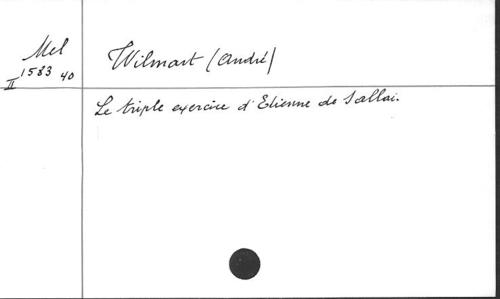 Mel
II 1583 40
Wilmart (André)
Le triple exercice d'Etienne de Sallai.